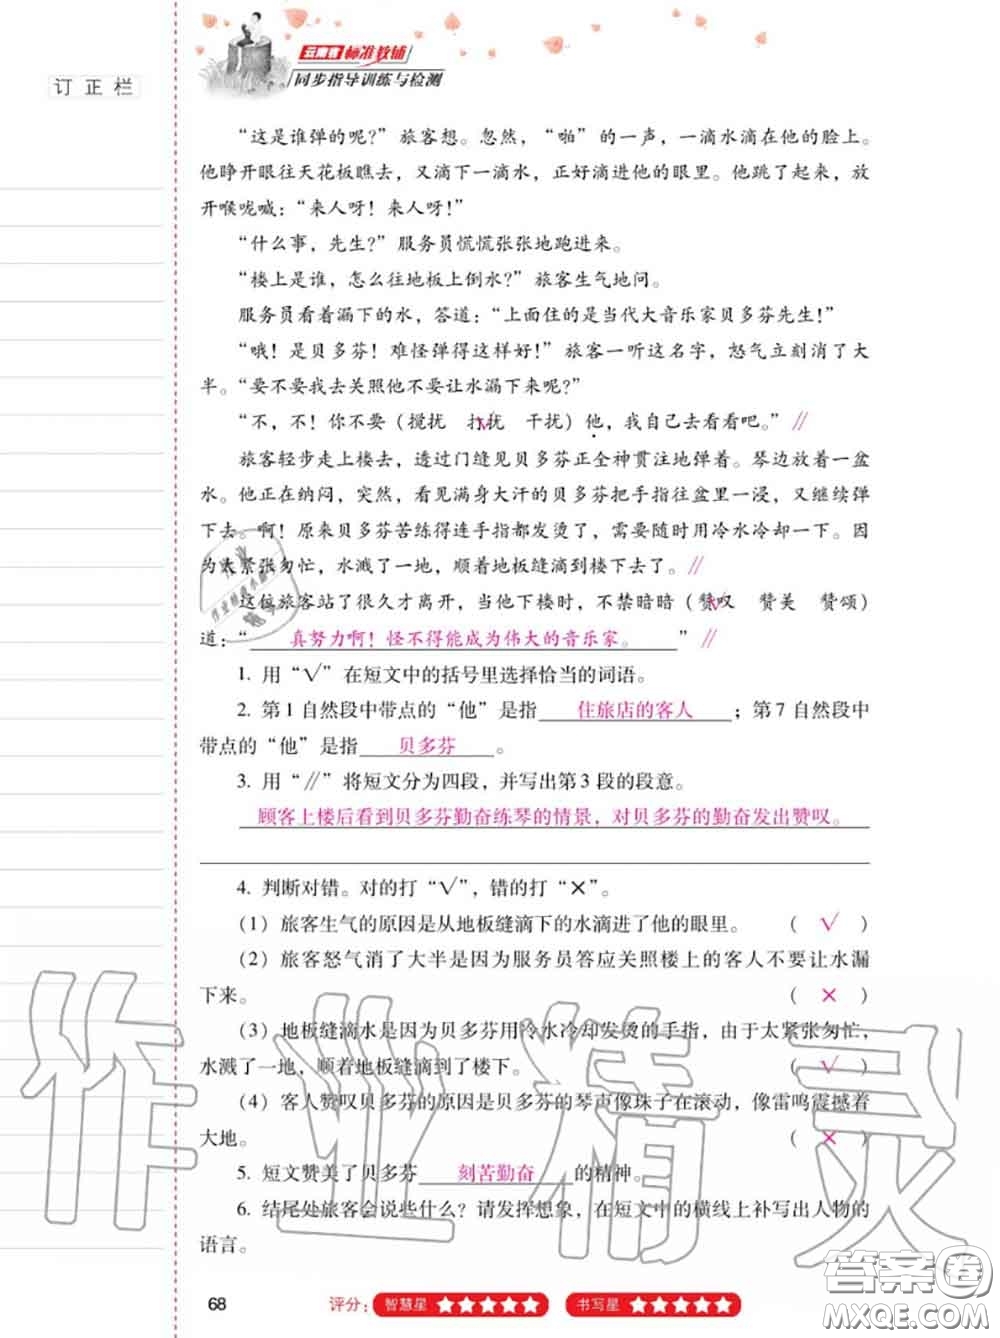 云南省 标准教辅
同步指导训练与检测
订 正 栏
“这是谁弹的呢?”旅客想。忽然,“啪”的一声,一滴水滴在他的脸上。
他睁开眼往天花板瞧去,又滴下一滴水,正好滴进他的眼里。他跳了起来,放
开喉咙喊:“来人呀!来人呀!”
“什么事,先生?”服务员慌慌张张地跑进来。
“楼上是谁,怎么往地板上倒水?”旅客生气地问。
服务员看着漏下的水,答道:“上面住的是当代大音乐家贝多芬先生!”
“哦!是贝多芬!难怪弹得这样好!”旅客一听这名字,怒气立刻消了大
半。“要不要我去关照他不要让水漏下来呢?”
“不,不!你不要(搅扰 打扰√ 干扰)他,我自己去看看吧。”//
旅客轻步走上楼去,透过门缝见贝多芬正全神贯注地弹着。琴边放着一盆
水。他正在纳闷,突然,看见满身大汗的贝多芬把手指往盆里一浸,又继续弹
下去。啊!原来贝多芬苦练得连手指都发烫了,需要随时用冷水冷却一下。因
为太紧张匆忙,水溅了一地,顺着地板缝滴到楼下去了。//
这位旅客站了很久才离开,当他下楼时,不禁暗暗(赞叹√ 赞美 赞颂)
道:“真努力啊!怪不得能成为伟大的音乐家。”//
1. 用“√”在短文中的括号里选择恰当的词语。
2. 第1自然段中带点的“他”是指 住旅店的客人 ;第7自然段中
带点的“他”是指 贝多芬 。
3. 用“//”将短文分为四段,并写出第3段的段意。
顾客上楼后看到贝多芬勤奋练琴的情景,对贝多芬的勤奋发出赞叹。
4. 判断对错。对的打“√”,错的打“×”。
(1)旅客生气的原因是从地板缝滴下的水滴进了他的眼里。 ( √ )
(2)旅客怒气消了大半是因为服务员答应关照楼上的客人不要让水漏
下来。 ( × )
(3)地板缝滴水是因为贝多芬用冷水冷却发烫的手指,由于太紧张匆忙,
水溅了一地,顺着地板缝滴到了楼下。 ( √ )
(4)客人赞叹贝多芬的原因是贝多芬的琴声像珠子在滚动,像雷鸣震撼着
大地。 ( × )
5. 短文赞美了贝多芬 刻苦勤奋 的精神。
6. 结尾处旅客会说些什么?请发挥想象,在短文中的横线上补写出人物的
语言。
作业精灵
68 评分: 智慧星 ★★★★★ 书写星 ★★★★★
答案圈
MXQE.COM